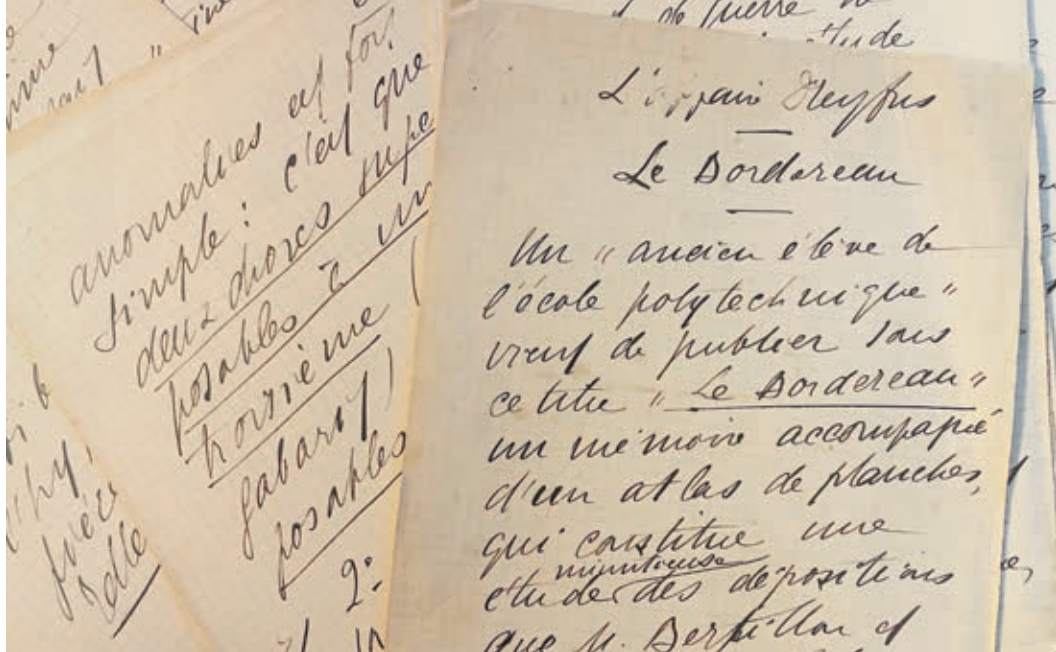 anomalies est fort
simple : c'est que
deux choses supe
posables à un
troisième (
gabarit)
posables
2°
de guerre
étude
L'affaire Dreyfus
Le Bordereau
Un "ancien élève de
l'école polytechnique"
vient de publier sous
ce titre "Le Bordereau"
un mémoire accompagné
d'un atlas de planches,
qui constitue une
minutieuse
étude des dépositions
que M. Bertillon et